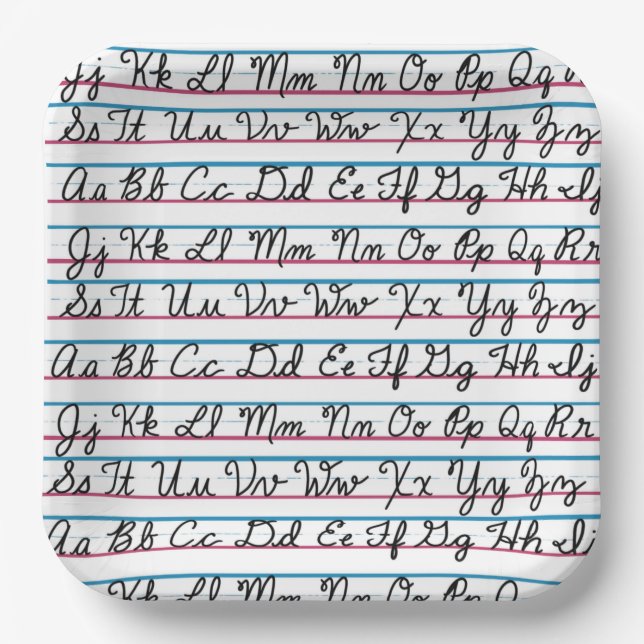 Jj Kk Ll Mm Nn Oo Pp Qq
Ss Tt Uu Vv Ww Xx Yy Zz
Aa Bb Cc Dd Ee Ff Gg Hh Ii
Jj Kk Ll Mm Nn Oo Pp Qq Rr
Ss Tt Uu Vv Ww Xx Yy Zz
Aa Bb Cc Dd Ee Ff Gg Hh Ii
Jj Kk Ll Mm Nn Oo Pp Qq Rr
Ss Tt Uu Vv Ww Xx Yy Zz
Aa Bb Cc Dd Ee Ff Gg Hh Ii
Kk Ll Mm Nn Oo Pp Qq